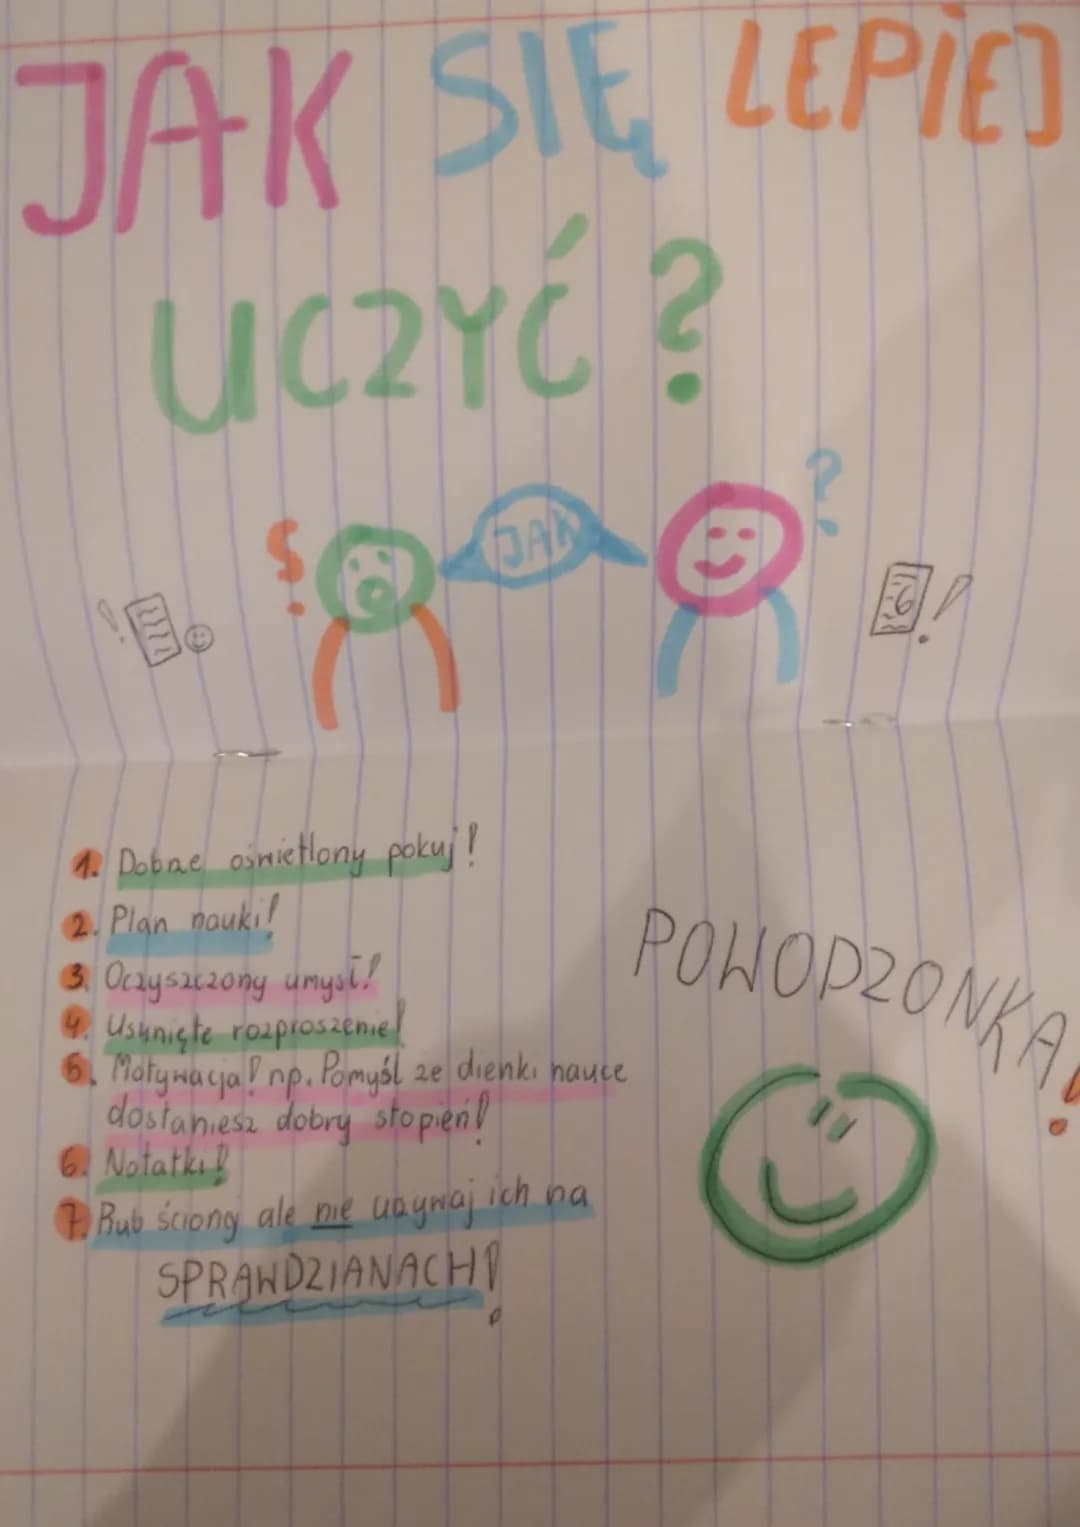 JAK SIĘ LEPIEJ
UCZYĆ?
?
JAK
?
!
6!
1. Dobrze oświetlony pokuj!
2. Plan nauki!
3. Oczyszczony umysł!
4. Usunięte rozproszenie!
5. Motywacja! np. Pomyśl że dienki nauce
dostaniesz dobry stopień!
6. Notatki!
7. Rub ściony ale nie urzywaj ich na
SPRAWDZIANACH!
POWODZONKA!